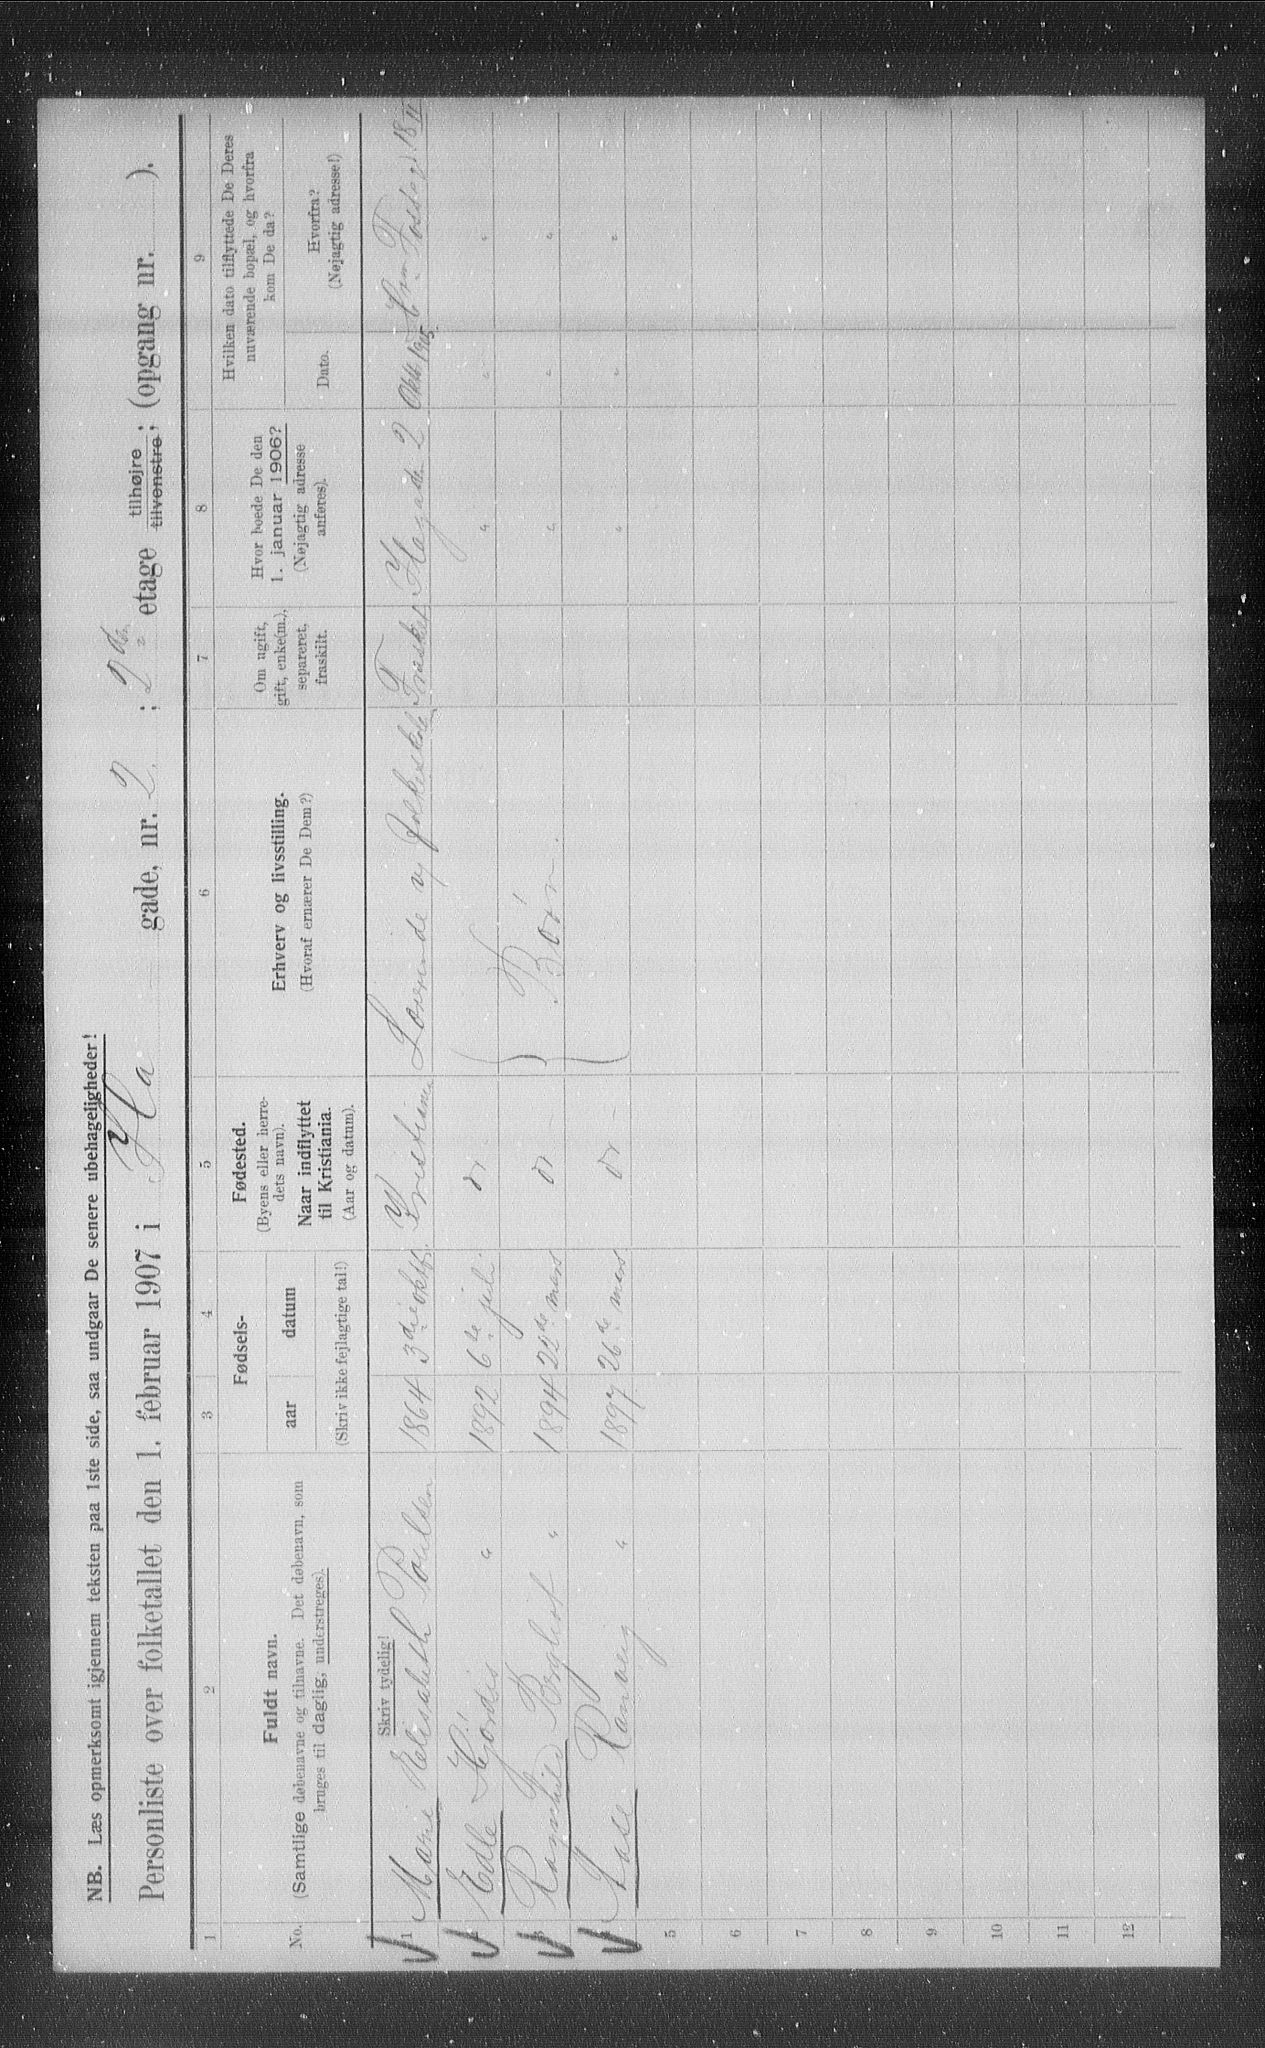 NB. Læs opmerksomt igjennem teksten paa 1ste side, saa undgaar De senere ubehageligheder!
Personliste over folketallet den 1. februar 1907 i Ila gade, nr. 2. ; 2den etage tilhøjre ; (opgang nr. ).
tilvenstre
1 2 3 4 5 6 7 8 9
No.
Fuldt navn.
(Samtlige døbenavne og tilnavne. Det døbenavn, som
bruges til daglig, understreges).
Fødsels-
aar datum
(Skriv ikke fejlagtige tal!)
Fødested.
(Byens eller herre-
dets navn).
Naar indflyttet
til Kristiania.
(Aar og datum).
Erhverv og livsstilling.
(Hvoraf ernærer De Dem?)
Om ugift,
gift, enke(m.),
separeret,
fraskilt.
Hvor boede De den
1. januar 1906?
(Nøjagtig adresse
anføres).
Hvilken dato tilflyttede De Deres
nuværende bopæl, og hvorfra
kom De da?
Dato.
Hvorfra?
(Nøjagtig adresse!)
Skriv tydelig!
1 Marie Elisabeth Poulsen 1864 3die oktb. Kristiania Lærerinde v/ folkeskolen Fraskilt Ilagade 2 Okt 1905 18
2 Edle Hjørdis " 1892 6te juli do " " "
3 Ragnhild Bergliot " 1894 22de mars do Børn. " " "
4 Aase Ranveig " 1897 26de mars do " " "
5
6
7
8
9
10
11
12